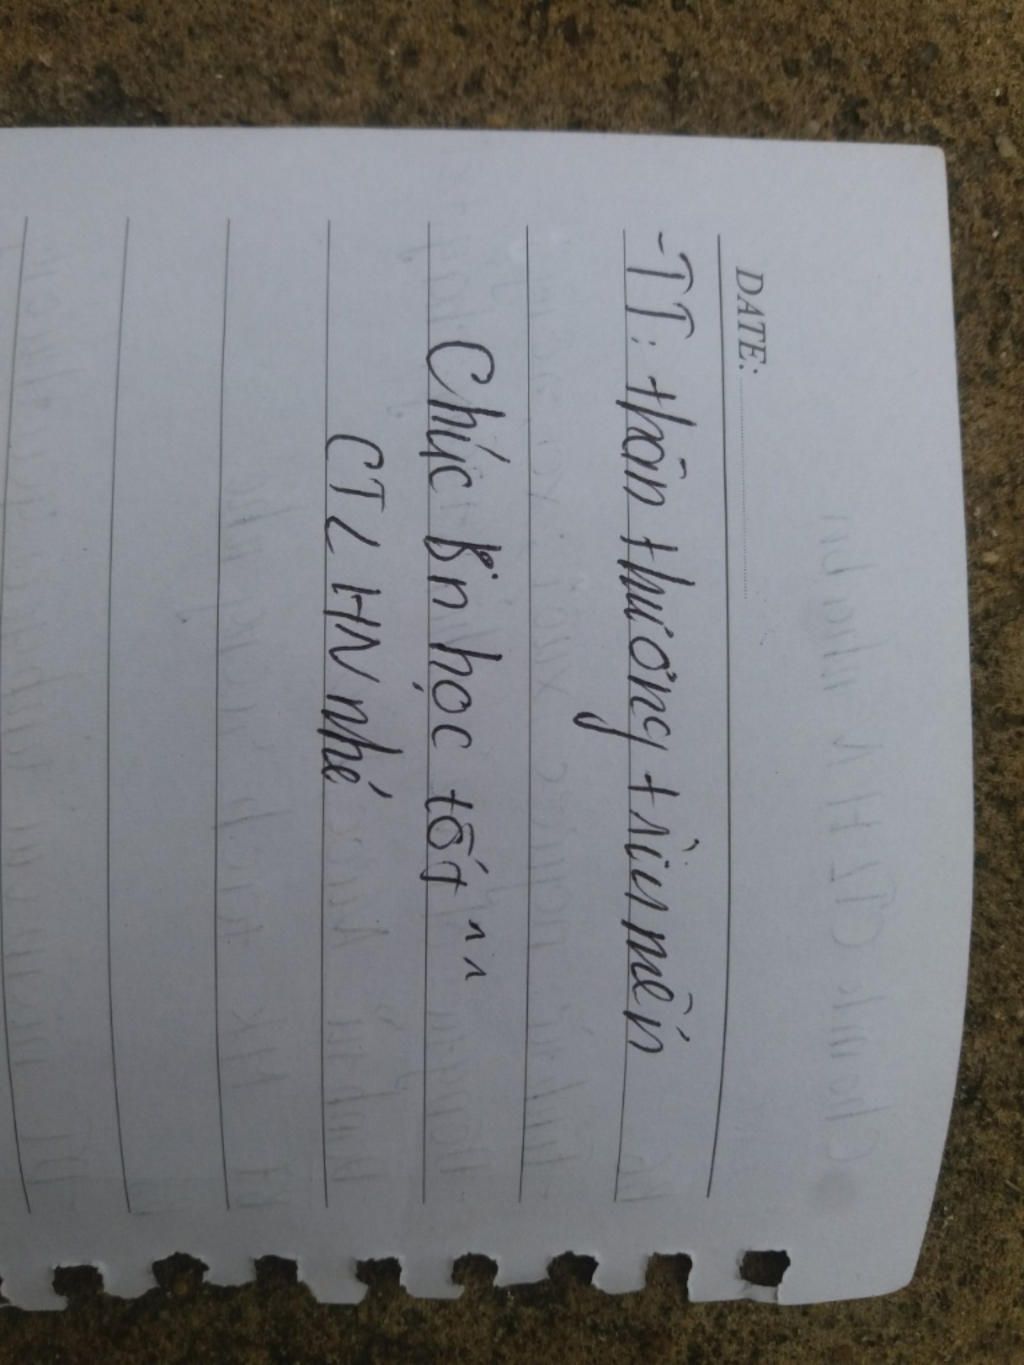 DATE:
-TT: thân thương trìu mến
Chúc bn học tốt ^^
CTL HN nhé